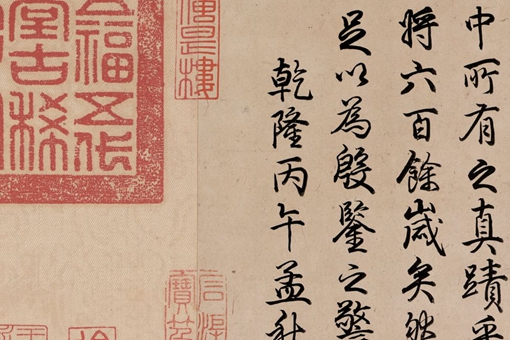 中所有之真蹟
將六百餘歲矣然
足以為殷鑒之警
乾隆丙午孟秋
五福五代
堂古稀
寶笈